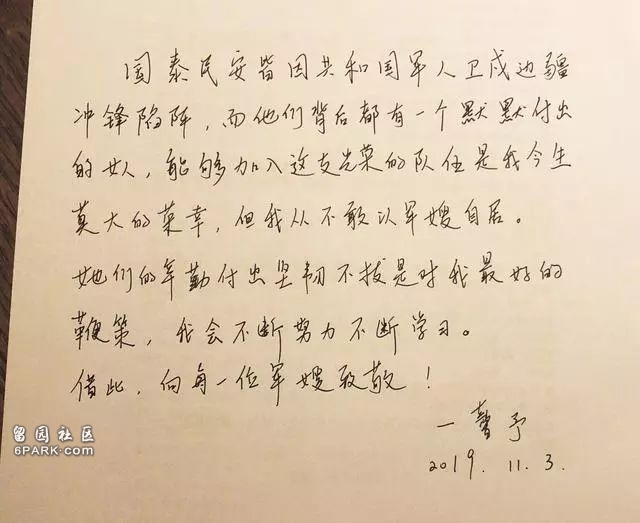 国泰民安皆因共和国军人卫戍边疆
冲锋陷阵，而他们背后都有一个默默付出
的女人，能够加入这支光荣的队伍是我今生
莫大的荣幸，但我从不敢以军嫂自居。
她们的辛勤付出坚韧不拔是对我最好的
鞭策，我会不断努力不断学习。
借此，向每一位军嫂致敬！
一馨予
2019. 11. 3.
留园社区
6PARK.COM